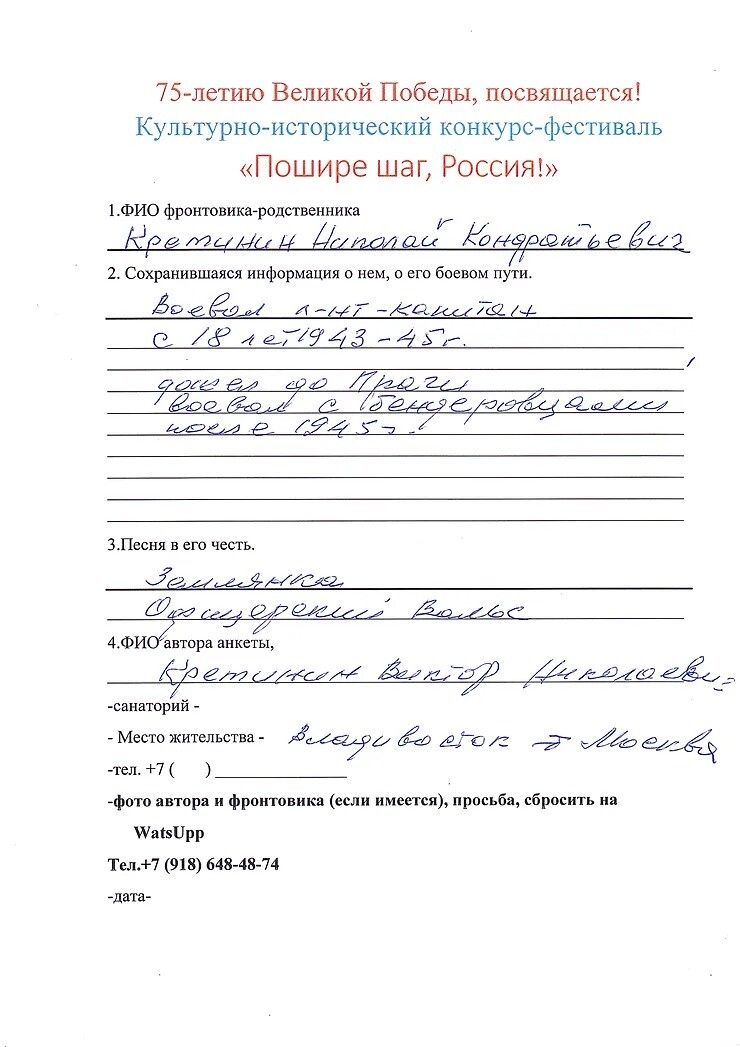 75-летию Великой Победы, посвящается!
Культурно-исторический конкурс-фестиваль
«Пошире шаг, Россия!»
1.ФИО фронтовика-родственника
Кретинин Николай Кондратьевич
2. Сохранившаяся информация о нем, о его боевом пути.
Воевал л-нт-капитан
с 18 лет 1943-45г.
дошел до Праги
воевал с бендеровцами
после 1945г.
3.Песня в его честь.
Землянка
Офицерский Вальс
4.ФИО автора анкеты,
Кретинин Виктор Николаевич
-санаторий -
- Место жительства - Владивосток → Москва
-тел. +7 ( ) _______________
-фото автора и фронтовика (если имеется), просьба, сбросить на
WatsUpp
Тел.+7 (918) 648-48-74
-дата-